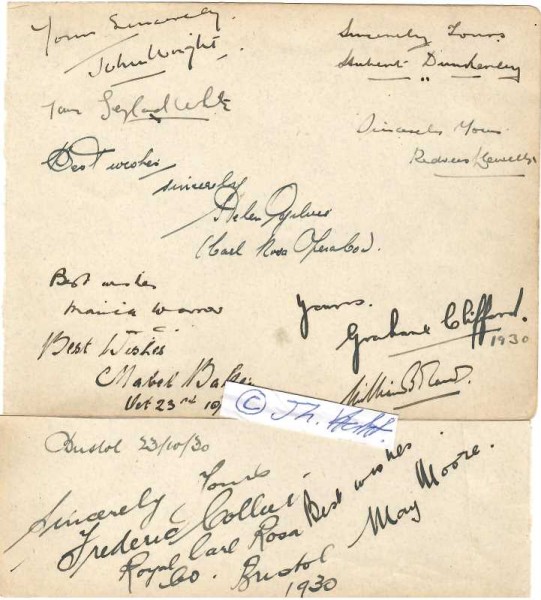 Yours Sincerely
John Wright.
Sincerely Yours
Hubert Dunkerley
Leyland White
Sincerely Yours
Redvers Llewellyn
Best wishes
sincerely
Helen Ogilvie
Carl Rosa Opera Co.
Best wishes
Yours.
Graham Clifford.
1930
Best Wishes
Mabel
Oct 23rd 19
© Th.
Bristol 23/10/30
Yours
Sincerely
Frederic Collier
Royal Carl Rosa
Co. Bristol
1930
Best wishes
May Moore.